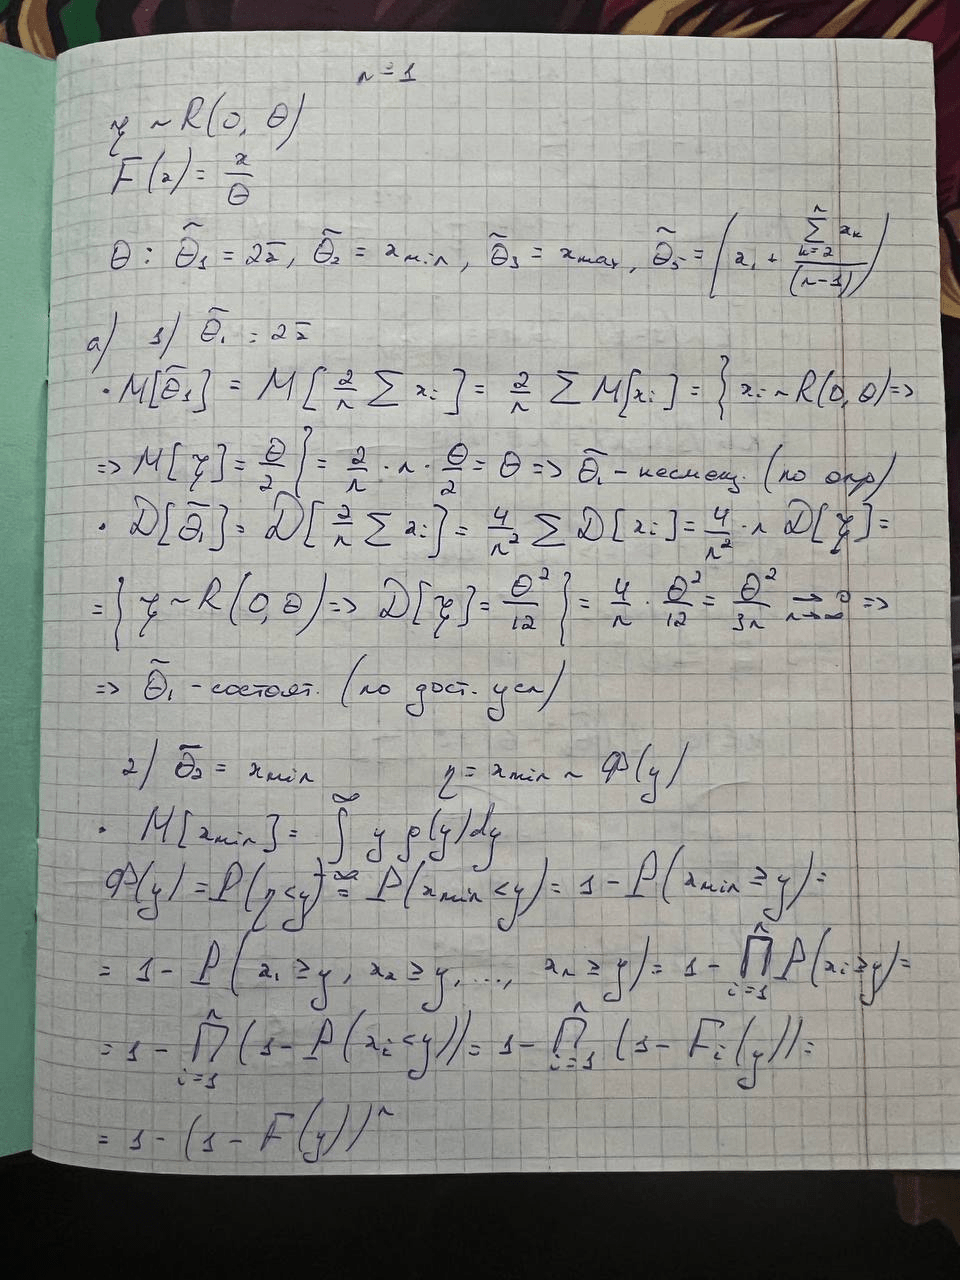 n = 1
ξ ~ R(0, θ)
F(x) = x/θ
θ: θ̃₁ = 2x̄, θ̃₂ = x_min, θ̃₃ = x_max, θ̃₅ = (x₁ + ∑_{k=2}^{n} x_k / (n-1))
а) 1) θ̃₁ = 2x̄
· M[θ̃₁] = M[2/n ∑ xᵢ] = 2/n ∑ M[xᵢ] = { xᵢ ~ R(0, θ) =>
=> M[ξ] = θ/2 } = 2/n · n · θ/2 = θ => θ̃₁ - несмещ. (по опр)
· D[θ̃₁] = D[2/n ∑ xᵢ] = 4/n² ∑ D[xᵢ] = 4/n² · n D[ξ] =
= { ξ ~ R(0, θ) => D[ξ] = θ²/12 } = 4/n · θ²/12 = θ²/3n →_{n→∞} 0 =>
=> θ̃₁ - состоят. (по дост. усл)
2) θ̃₂ = x_min η = x_min ~ Φ(y)
· M[x_min] = ∫_{-∞}^{∞} y φ(y) dy
Φ(y) = P(η < y) = P(x_min < y) = 1 - P(x_min ≥ y) =
= 1 - P(x₁ ≥ y, x₂ ≥ y, ..., xₙ ≥ y) = 1 - ∏_{i=1}^{n} P(xᵢ ≥ y) =
= 1 - ∏_{i=1}^{n} (1 - P(xᵢ < y)) = 1 - ∏_{i=1}^{n} (1 - Fᵢ(y)) =
= 1 - (1 - F(y))ⁿ